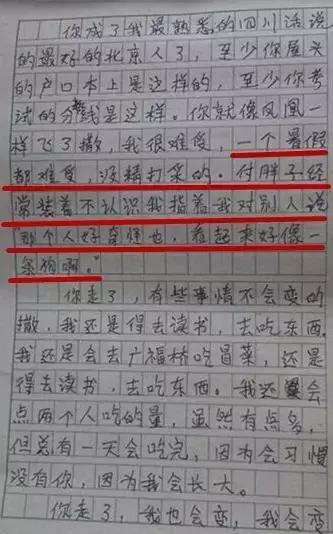 你成了我最熟悉的四川话说
的最好的北京人了,至少你屋头
的户口本上是这样的,至少你考
试的分数线是这样。你就像凤凰一
样飞了撒,我很难受,一个暑假
都难受,没精打采的。付胖子经
常装着不认识我指着我对别人说
“那个人好奇怪也,看起来好像一
条狗啊。”
你走了,有些事情不会变的
撒,我还是得去读书,去吃东西。
我还是会去广福桥吃冒菜,还是
得去读书,去吃东西。我还会
点两个人吃的量,虽然有点多,
但总有一天会吃完,因为会习惯
没有你,因为我会长大。
你走了,我也会变,我会变